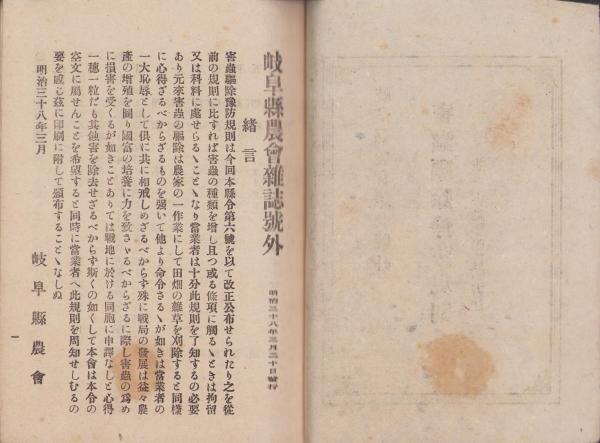 岐阜縣農會雜誌號外
明治三十八年三月二十日發行
緒言
害蟲驅除豫防規則は今回本縣令第六號を以て改正公布せられたり之を從
前の規則に比すれば害蟲の種類を增し且つ或る條項に觸るゝときは拘留
又は科料に處せらるゝことゝなり當業者は十分此規則を了知するの必要
あり元來害蟲の驅除は農家の一作業にして田畑の雜草を刈除すると同樣
に心得ざるべからざるものを强いて他より命令さるゝが如きは當業者の
一大恥辱として俱に共に相戒しめざるべからす殊に戰局の發展は益々農
產の增殖を圖り國富の培養に力を致さゝるべからざるに際し害蟲の爲め
に損害を受くるが如きことありては戰地に於ける同胞に申譯なしと心得
一穗一粒だも其蝕害を除去せざるべからす斯くの如くして本會は本令の
空文に屬せんことを希望すると同時に當業者へ此規則を周知せしむるの
要を感じ茲に印刷に附して頒布することゝなしぬ
明治三十八年三月
岐阜縣農會
一